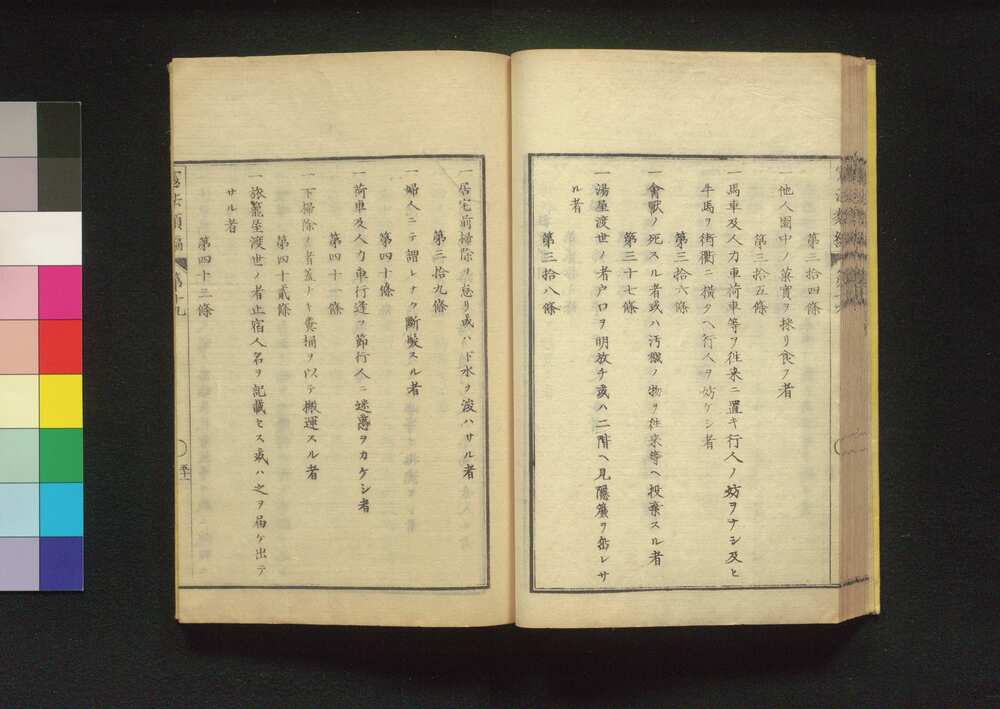 第三拾四條
一他人園中ノ菓實ヲ採リ食フ者
第三拾五條
一馬車及人力車荷車等ヲ往来ニ置キ行人ノ妨ヲナシ及ヒ
牛馬ヲ街衢ニ横タヘ行人ヲ妨ケシ者
第三拾六條
一禽獣ノ死スル者或ハ汚穢ノ物ヲ往来等ヘ投棄スル者
第三十七條
一湯屋渡世ノ者戸口ヲ明放チ或ハ二階ヘ見隠簾ヲ垂レサ
ル者
第三拾八條
一居宅前掃除ヲ怠リ或ハ下水ヲ浚ハサル者
第三拾九條
一婦人ニテ謂レナク断髪スル者
第四十條
一荷車及人力車行逢フ節行人ニ迷惑ヲカケシ者
第四十一條
一下掃除ノ者蓋ナキ糞桶ヲ以テ搬運スル者
第四十貳條
一旅籠屋渡世ノ者止宿人名ヲ記載セス或ハ之ヲ届ケ出テ
サル者
第四十三條
憲法類編 第十九
五十一